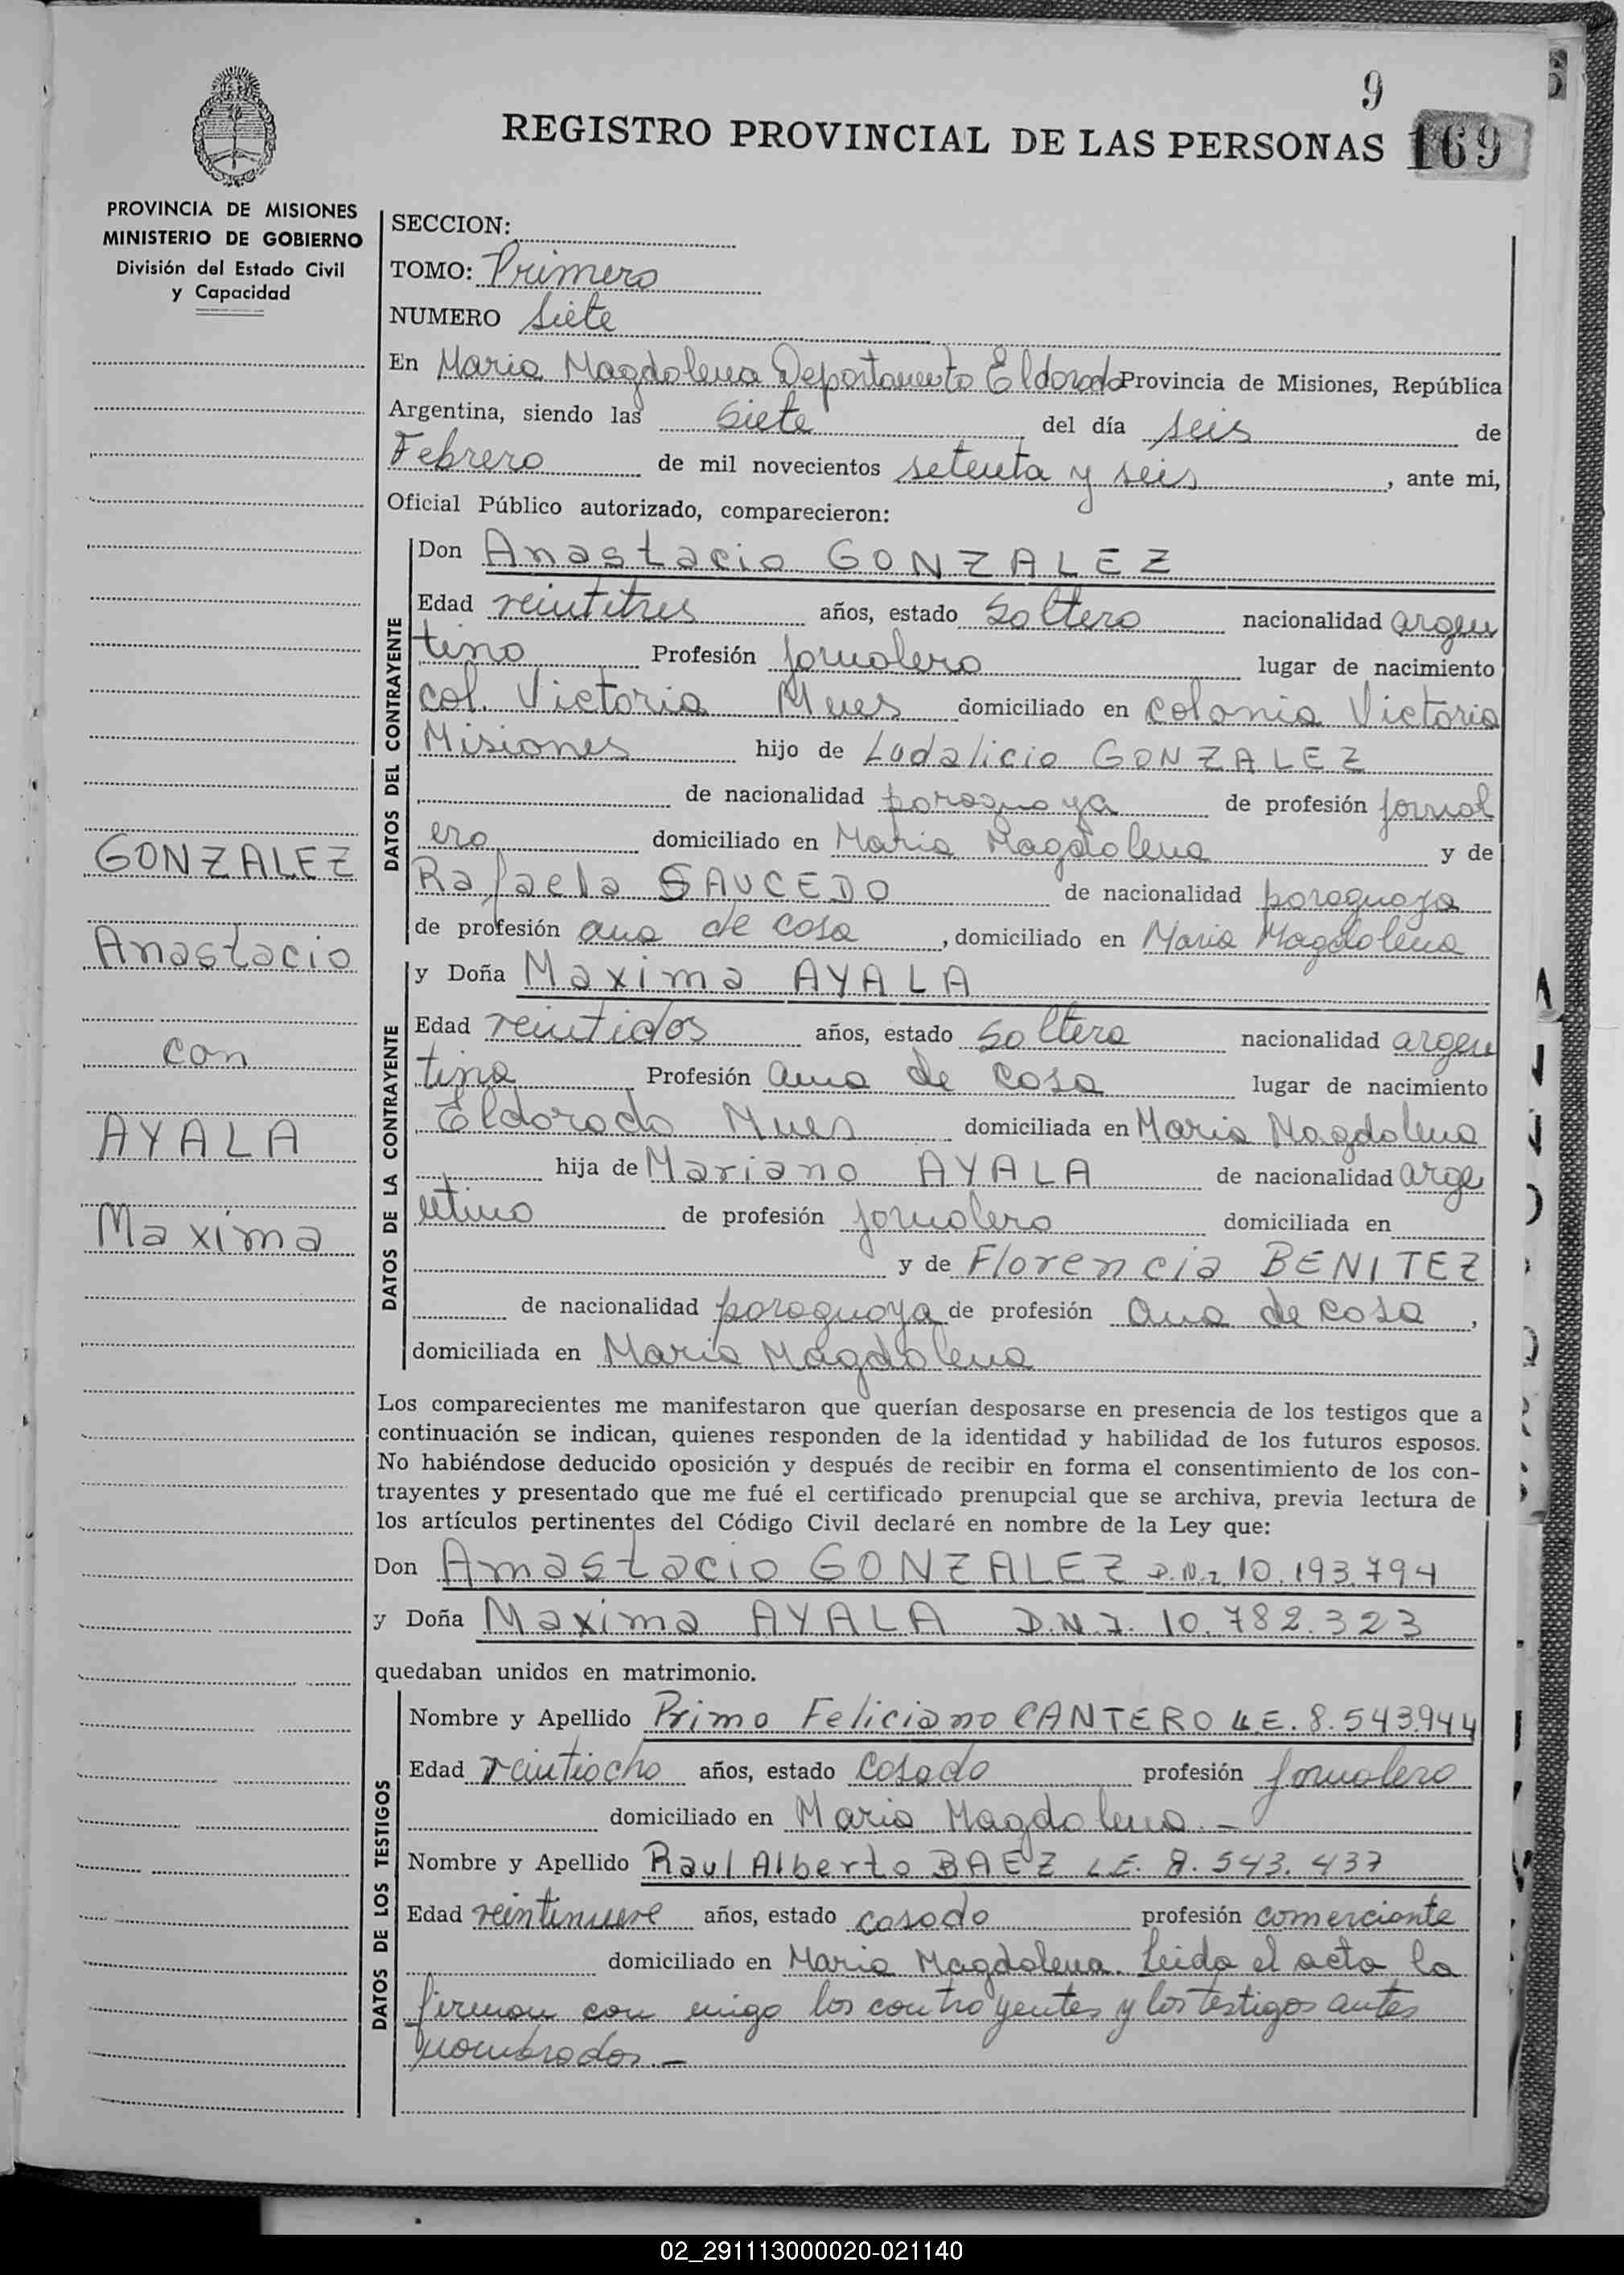 9
REGISTRO PROVINCIAL DE LAS PERSONAS 169
PROVINCIA DE MISIONES
MINISTERIO DE GOBIERNO
División del Estado Civil
y Capacidad
SECCION:
TOMO: Primero
NUMERO Siete
En Maria Magdalena Departamento Eldorado Provincia de Misiones, República
Argentina, siendo las Siete del día seis de
Febrero de mil novecientos setenta y seis, ante mi,
Oficial Público autorizado, comparecieron:
DATOS DEL CONTRAYENTE
Don Anastacio GONZALEZ
Edad veintitres años, estado Soltero nacionalidad argen
tino Profesión Jornalero lugar de nacimiento
col. Victoria Mnes domiciliado en colonia Victoria
Misiones hijo de Ludalicio GONZALEZ
de nacionalidad paraguaya de profesión jornal
ero domiciliado en Maria Magdalena y de
Rafaela SAUCEDO de nacionalidad paraguaya
de profesión ama de casa, domiciliado en Maria Magdalena
DATOS DE LA CONTRAYENTE
y Doña Maxima AYALA
Edad veintidos años, estado Soltera nacionalidad argen
tina Profesión ama de casa lugar de nacimiento
Eldorado Mnes domiciliada en Maria Magdalena
hija de Mariano AYALA de nacionalidad arge
ntino de profesión jornalero domiciliada en
y de Florencia BENITEZ
de nacionalidad paraguaya de profesión ama de casa,
domiciliada en Maria Magdalena
GONZALEZ
Anastacio
con
AYALA
Maxima
Los comparecientes me manifestaron que querían desposarse en presencia de los testigos que a
continuación se indican, quienes responden de la identidad y habilidad de los futuros esposos.
No habiéndose deducido oposición y después de recibir en forma el consentimiento de los con-
trayentes y presentado que me fué el certificado prenupcial que se archiva, previa lectura de
los artículos pertinentes del Código Civil declaré en nombre de la Ley que:
Don Anastacio GONZALEZ D.N.I. 10.193.794
y Doña Maxima AYALA D.N.I. 10.782.323
quedaban unidos en matrimonio.
DATOS DE LOS TESTIGOS
Nombre y Apellido Primo Feliciano CANTERO L.E. 8.543.944
Edad veintiocho años, estado Casado profesión jornalero
domiciliado en Maria Magdalena.-
Nombre y Apellido Raul Alberto BAEZ L.E. 8.543.437
Edad veintinueve años, estado casado profesión comerciante
domiciliado en Maria Magdalena. Leida el acta la
firman con migo los contrayentes y los testigos antes
nombrados.-
02_291113000020-021140